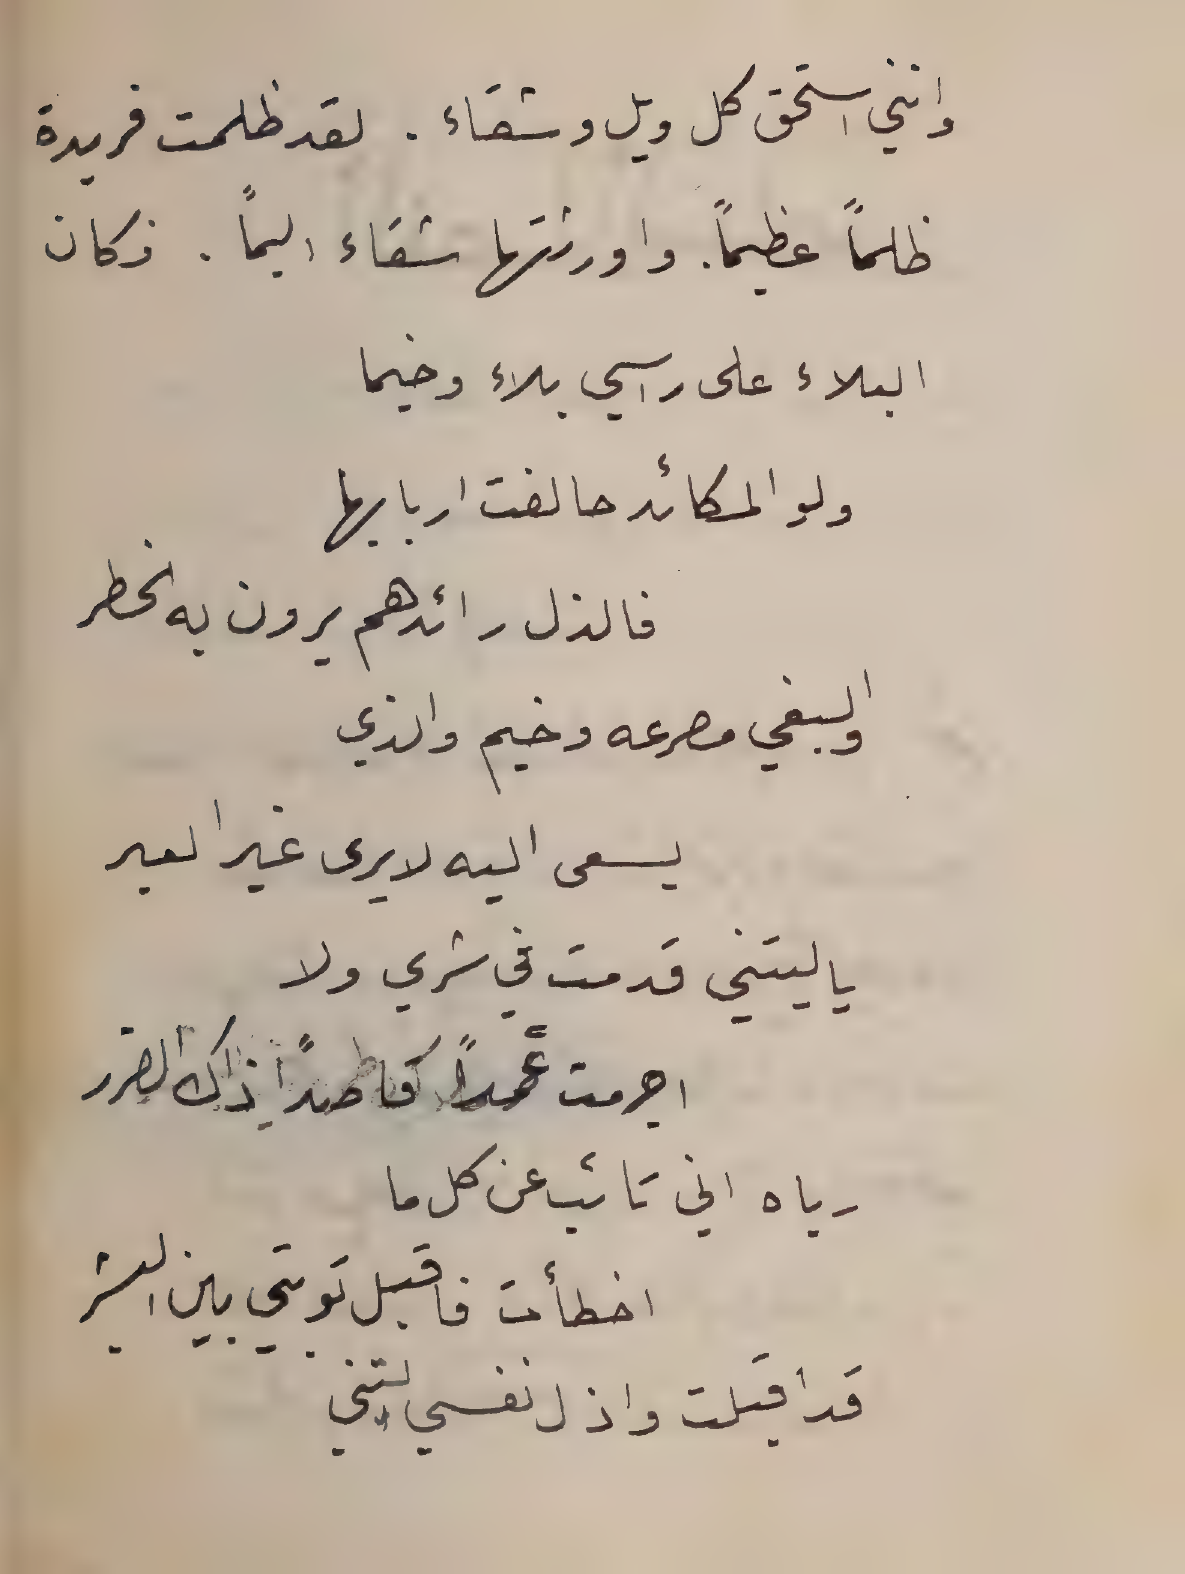 وانني استحق كل ويل وشقاء . لقد ظلمت فريدة
ظلماً عظيماً. واورثتها شقاء اليماً . فكان
البلاء على راسي بلاء وخيما
ولو المكائد حالفت اربابها
فالذل رائدهم يرون به الخطر
والبغي مصرعه وخيم والذي
يسعى اليه لا يرى غير العبر
يا ليتني قد مت في شري ولا
اجرمت عمداً قاصداً ذاك الضرر
رباه اني تائب عن كل ما
اخطأت فاقبل توبتي بين البشر
قد اقبلت واذل نفسي ليتني